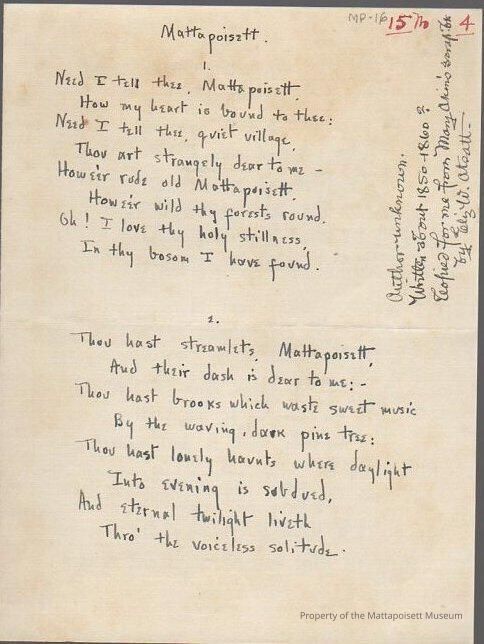 MP-16 15 No 4
Mattapoisett.
1.
Need I tell thee, Mattapoisett,
How my heart is bound to thee:
Need I tell thee, quiet village,
Thou art strangely dear to me –
Howe'er rude old Mattapoisett,
Howe'er wild thy forests round.
Oh! I love thy holy stillness,
In thy bosom I have found.
2.
Thou hast streamlets, Mattapoisett,
And their dash is dear to me:-
Thou hast brooks which waste sweet music
By the waving, dark pine tree:
Thou hast lonely haunts where daylight
Into evening is subdued,
And eternal twilight liveth
Thro' the voiceless solitude.
Author-unknown.
Written about 1850-1860?
Copied for me from Mary Akins' scrap bk
by Eliz. W.
Property of the Mattapoisett Museum